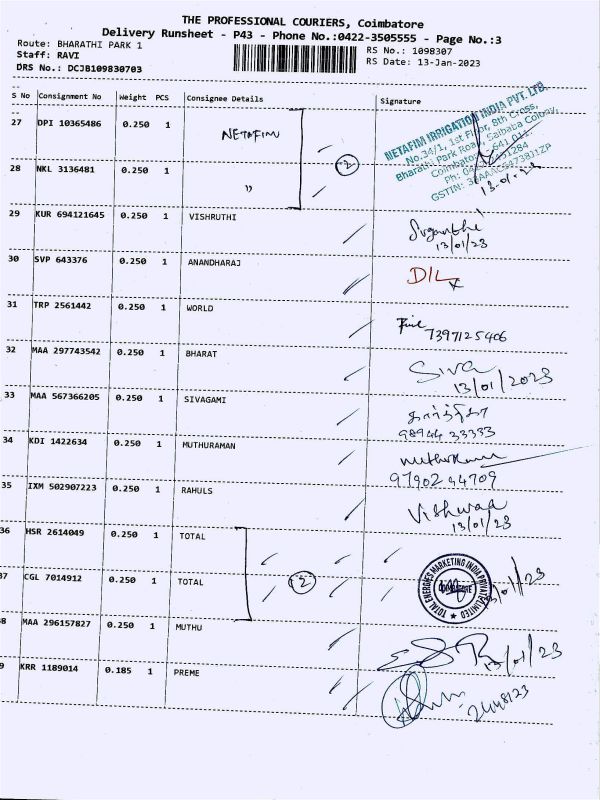 THE PROFESSIONAL COURIERS, Coimbatore
Delivery Runsheet - P43 - Phone No.:0422-3505555 - Page No.:3
Route: BHARATHI PARK 1
RS No.: 1098307
Staff: RAVI
RS Date: 13-Jan-2023
DRS No.: DCJB109830703
S No Consignment No Weight PCS Consignee Details Signature
27 DPI 10365486 0.250 1 NETAFIM
NETAFIM IRRIGATION INDIA PVT. LTD.
No.34/1, 1st Floor, 8th Cross,
Bharathi Park Road, Saibaba Colony,
Coimbatore - 641 011.
GSTIN:
28 NKL 3136481 0.250 1 "
(2)
29 KUR 694121645 0.250 1 VISHRUTHI
13/01/23
30 SVP 643376 0.250 1 ANANDHARAJ D/L
31 TRP 2561442 0.250 1 WORLD
7397125406
32 MAA 297743542 0.250 1 BHARAT Siva
13/01/2023
33 MAA 567366205 0.250 1 SIVAGAMI
98944 33333
34 KDI 1422634 0.250 1 MUTHURAMAN
97902 94709
35 IXM 502907223 0.250 1 RAHULS Vishwaa
13/01/23
36 HSR 2614049 0.250 1 TOTAL
37 CGL 7014912 0.250 1 TOTAL (2)
TOTAL ENERGIES MARKETING INDIA PRIVATE LIMITED
COIMBATORE
38 MAA 296157827 0.250 1 MUTHU
13/01/23
39 KRR 1189014 0.185 1 PREME